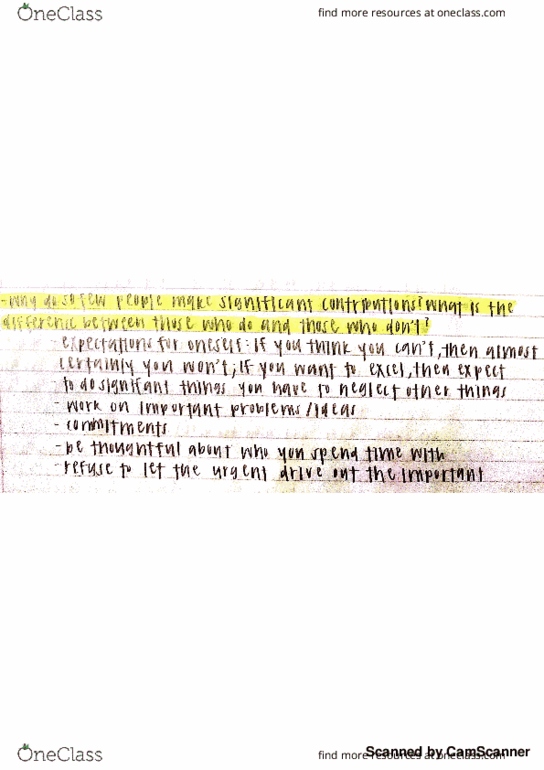 OneClass
find more resources at oneclass.com
-why do so few people make significant contributions? what is the
difference between those who do and those who don't?
- expectations for oneself: if you think you can't, then almost
certainly you won't; if you want to excel, then expect
to do signifiant things you have to neglect other things
- work on important problems/ideas
- commitments
- be thoughtful about who you spend time with
- refuse to let the urgent drive out the important
OneClass
find more resources at oneclass.com
Scanned by CamScanner